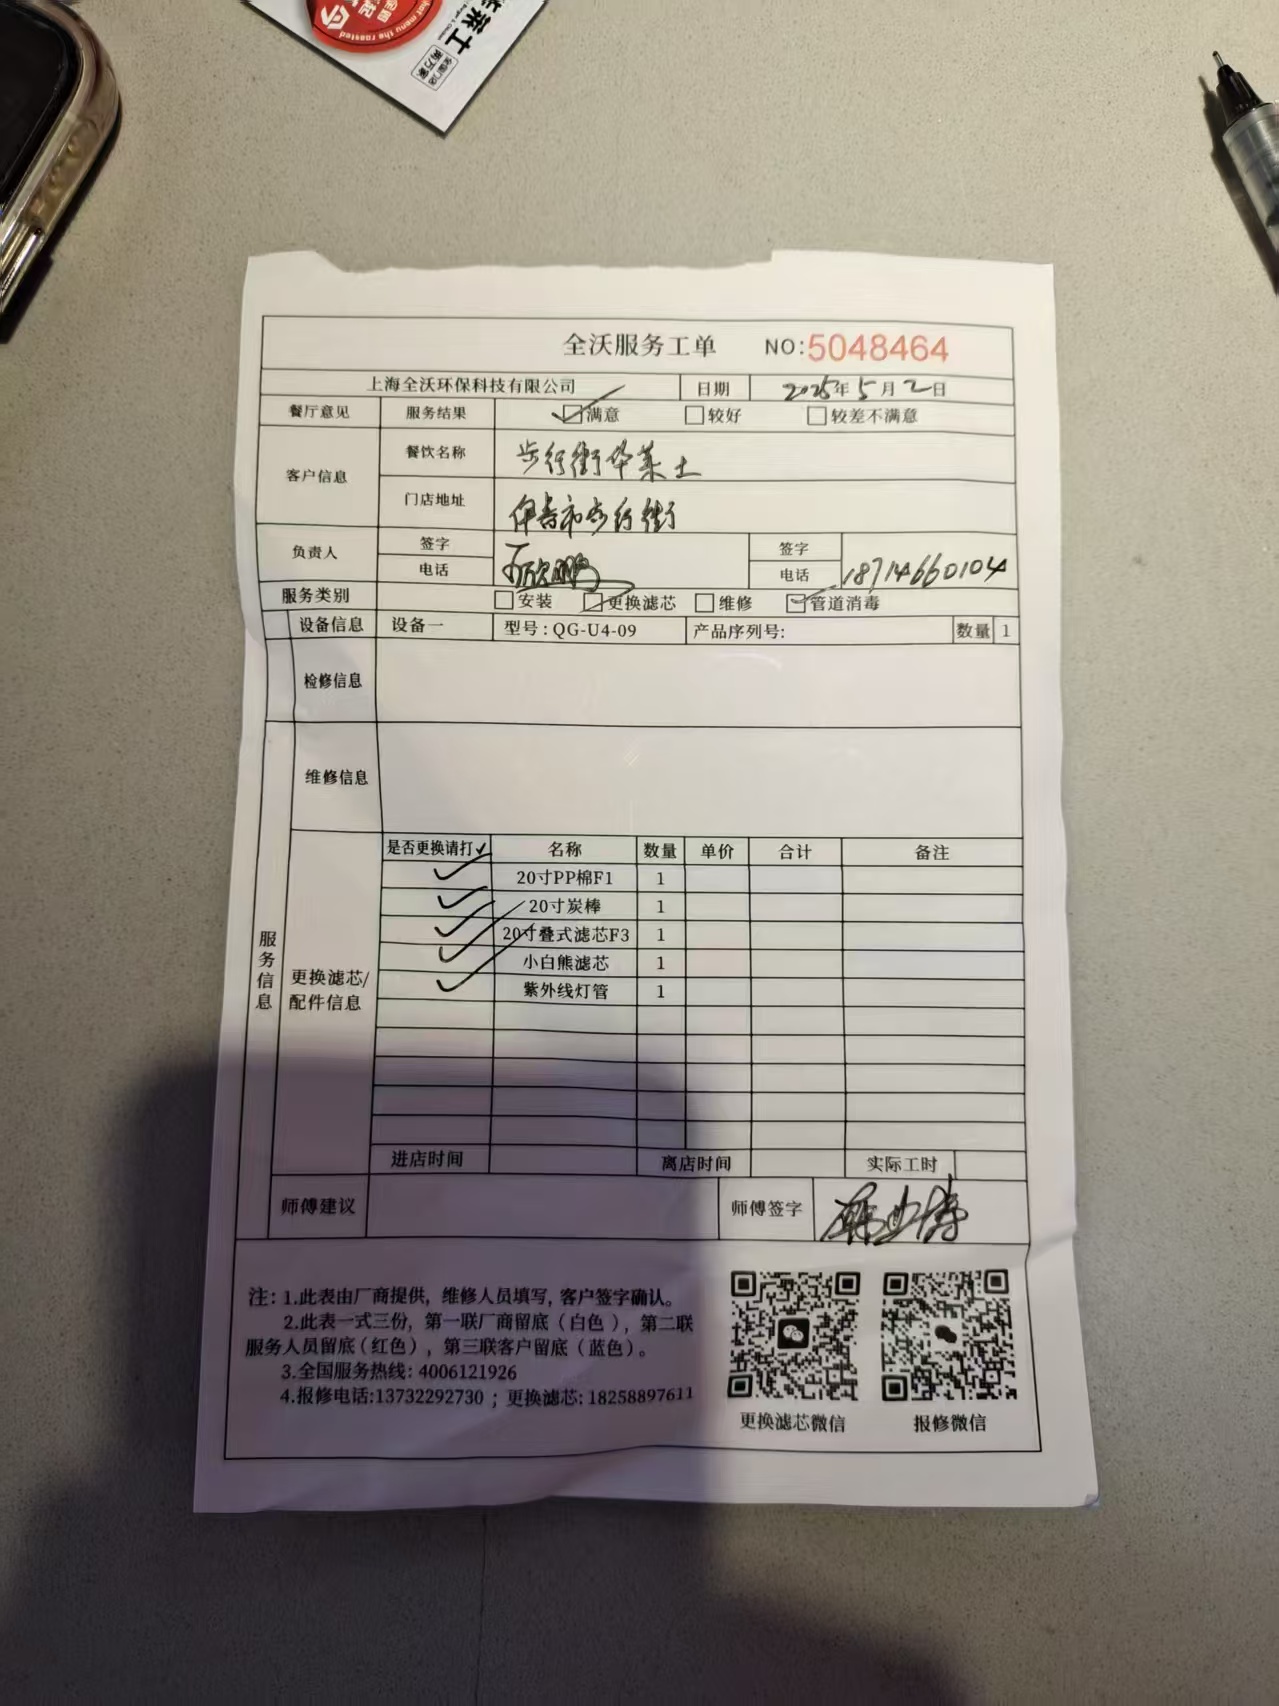 hot menu the roasted
华莱士
全国门店
两万家
全沃服务工单 NO:5048464
上海全沃环保科技有限公司 日期 2025年5月2日
餐厅意见 服务结果 满意 较好 较差不满意
客户信息 餐饮名称 步行街华莱士
门店地址 伊春市步行街
负责人 签字 签字
电话 电话 18714660104
服务类别 安装 更换滤芯 维修 管道消毒
设备信息 设备一 型号:QG-U4-09 产品序列号: 数量 1
检修信息
维修信息
服务信息
更换滤芯/配件信息
是否更换请打✓ 名称 数量 单价 合计 备注
✓ 20寸PP棉F1 1
✓ 20寸炭棒 1
✓ 20寸叠式滤芯F3 1
✓ 小白熊滤芯 1
✓ 紫外线灯管 1
进店时间 离店时间 实际工时
师傅建议 师傅签字
注:1.此表由厂商提供,维修人员填写,客户签字确认。
2.此表一式三份,第一联厂商留底(白色),第二联
服务人员留底(红色),第三联客户留底(蓝色)。
3.全国服务热线:4006121926
4.报修电话:13732292730;更换滤芯:18258897611
更换滤芯微信 报修微信